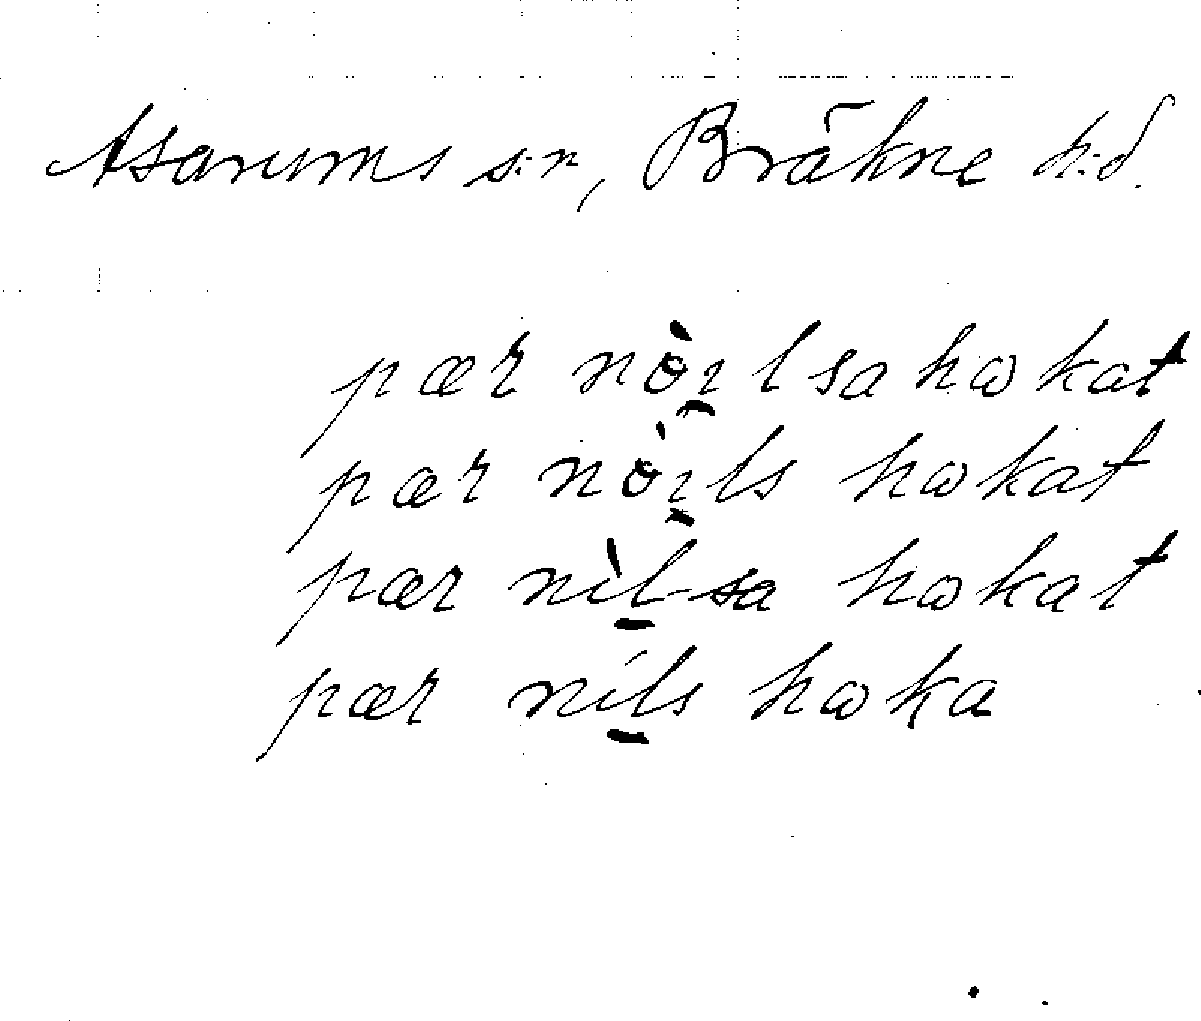 Asarums s:n, Bräkne h:d.
pær nö̀ı̱lsa hɷkat
pær nö̀ı̱ls hɷkat
pær nìḻsa hɷkat
pær níḻs hɷka